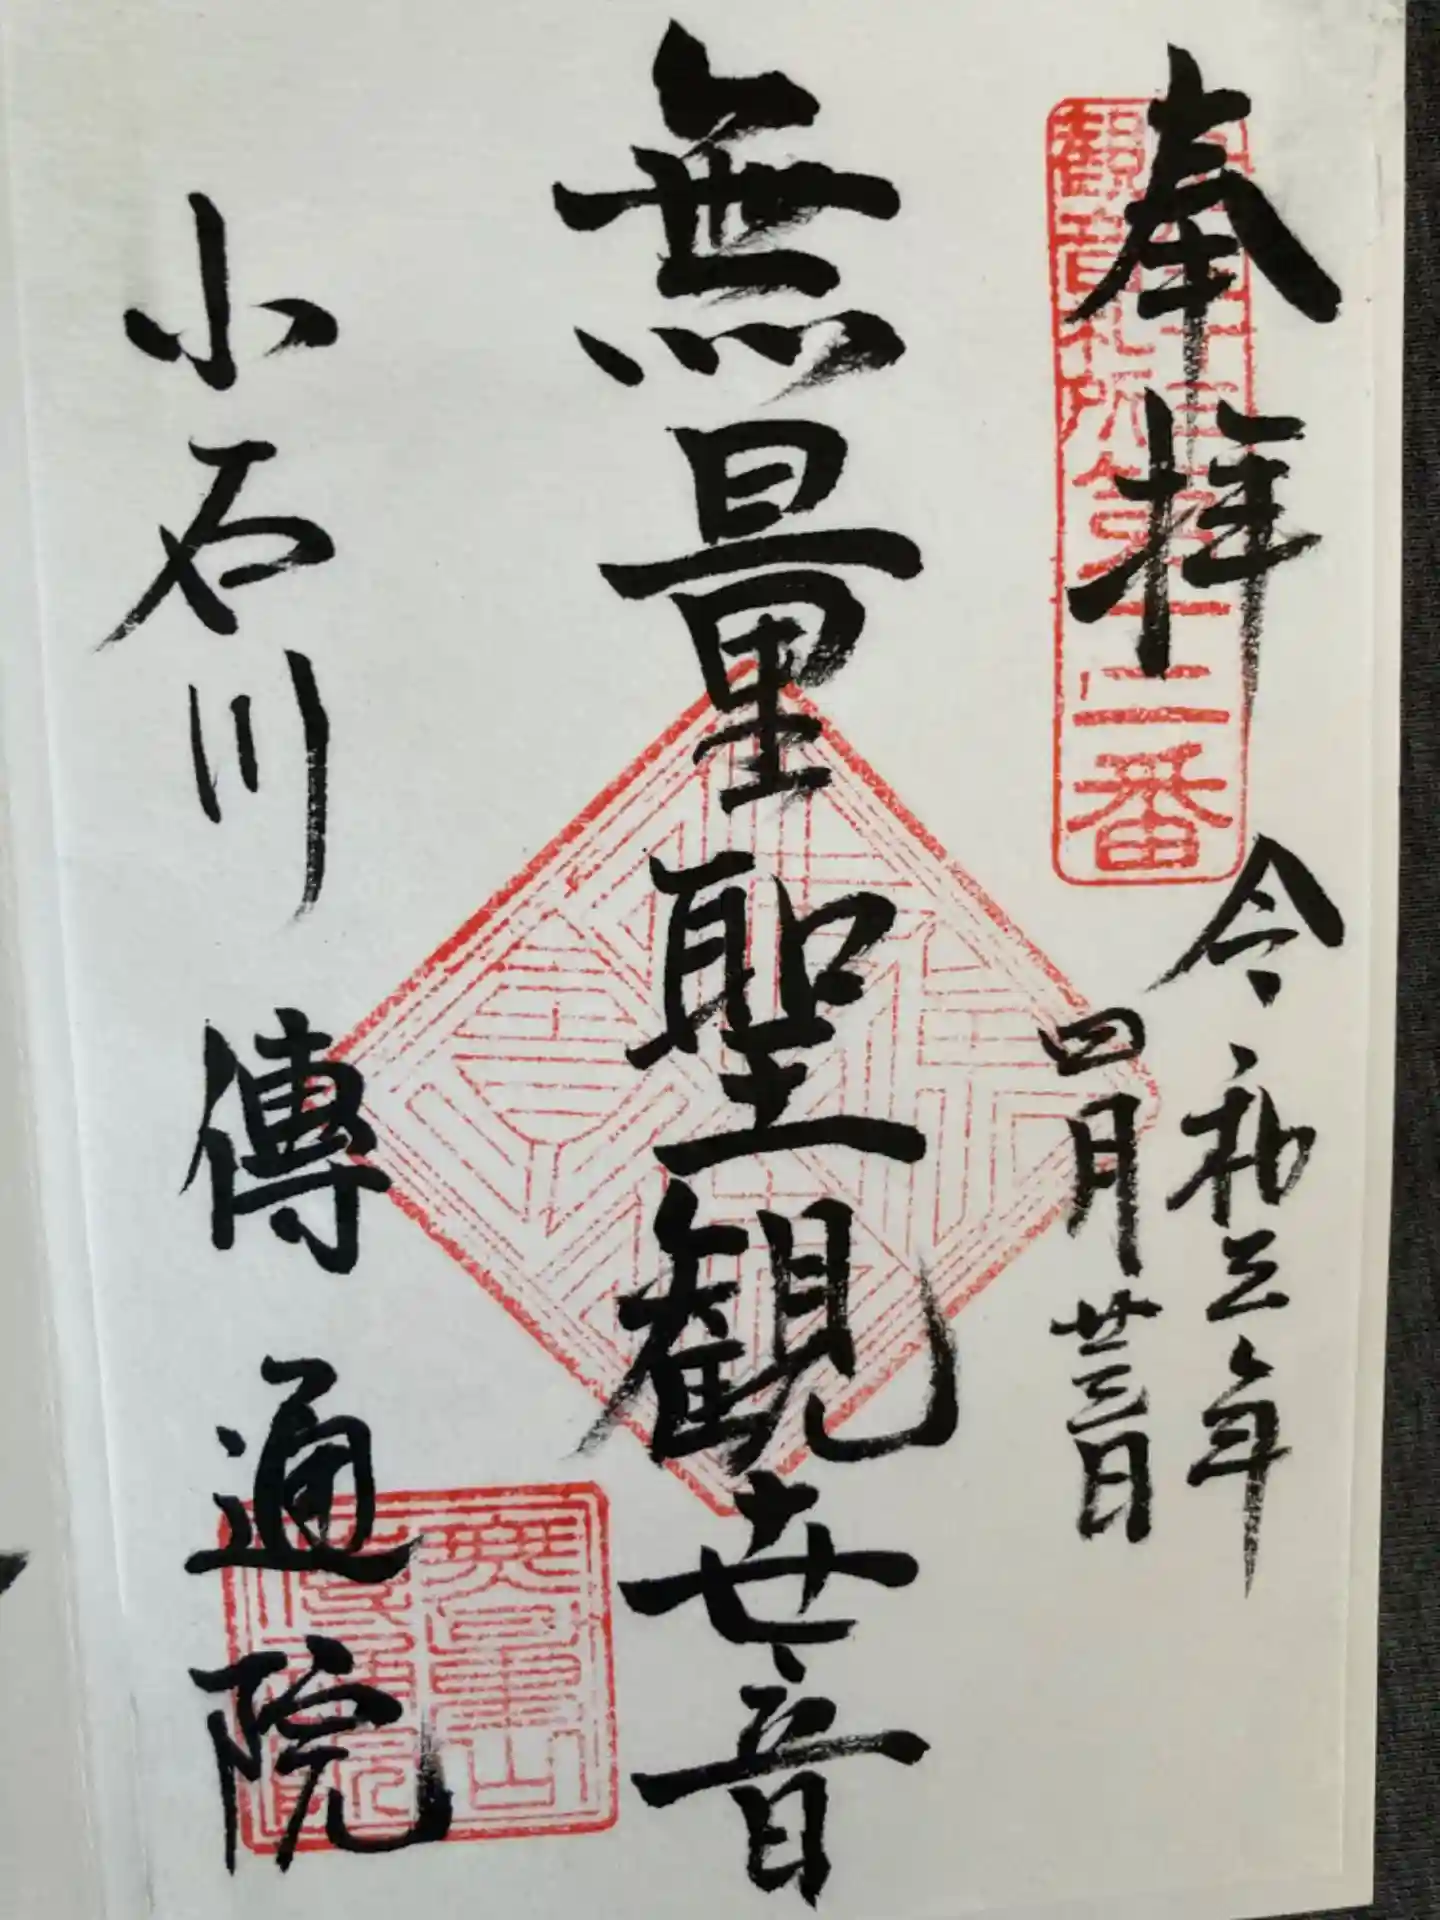 奉拝
観音札所第十二番
令和三年
四月廿三日
無量聖観世音
小石川 傳通院
無量山
傳通院